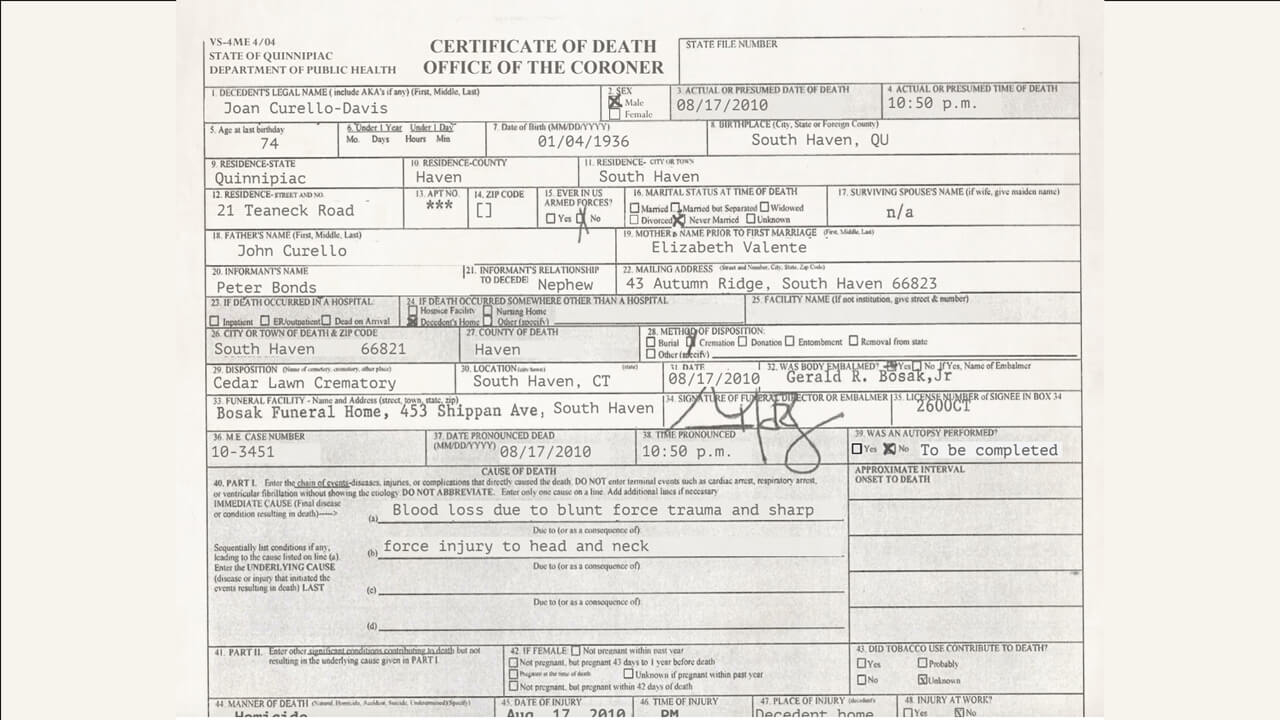 VS-4ME 4/04
STATE OF QUINNIPIAC
DEPARTMENT OF PUBLIC HEALTH
CERTIFICATE OF DEATH
OFFICE OF THE CORONER
STATE FILE NUMBER
1. DECEDENT'S LEGAL NAME ( include AKA's if any) (First, Middle, Last)
Joan Curello-Davis
2. SEX
Male
Female
3. ACTUAL OR PRESUMED DATE OF DEATH
08/17/2010
4. ACTUAL OR PRESUMED TIME OF DEATH
10:50 p.m.
5. Age at last birthday
74
6. Under 1 Year Under 1 Day
Mo. Days Hours Min
7. Date of Birth (MM/DD/YYYY)
01/04/1936
8. BIRTHPLACE (City, State or Foreign County)
South Haven, QU
9. RESIDENCE-STATE
Quinnipiac
10. RESIDENCE-COUNTY
Haven
11. RESIDENCE- CITY OR TOWN
South Haven
12. RESIDENCE-STREET AND NO.
21 Teaneck Road
13. APT NO.
***
14. ZIP CODE
[]
15. EVER IN US
ARMED FORCES?
Yes No
16. MARITAL STATUS AT TIME OF DEATH
Married Married but Separated Widowed
Divorced Never Married Unknown
17. SURVIVING SPOUSE'S NAME (if wife, give maiden name)
n/a
18. FATHER'S NAME (First, Middle, Last)
John Curello
19. MOTHER'S NAME PRIOR TO FIRST MARRIAGE (First, Middle, Last)
Elizabeth Valente
20. INFORMANT'S NAME
Peter Bonds
21. INFORMANT'S RELATIONSHIP
TO DECEDE
Nephew
22. MAILING ADDRESS (Street and Number, City, State, Zip Code)
43 Autumn Ridge, South Haven 66823
23. IF DEATH OCCURRED IN A HOSPITAL
Inpatient ER/outpatient Dead on Arrival
24. IF DEATH OCCURRED SOMEWHERE OTHER THAN A HOSPITAL
Hospice Facility Nursing Home
Decedent's Home Other (specify)
25. FACILITY NAME (If not institution, give street & number)
26. CITY OR TOWN OF DEATH & ZIP CODE
South Haven 66821
27. COUNTY OF DEATH
Haven
28. METHOD OF DISPOSITION:
Burial Cremation Donation Entombment Removal from state
Other (specify)
29. DISPOSITION (Name of cemetery, crematory, other place)
Cedar Lawn Crematory
30. LOCATION (city/town) (state)
South Haven, CT
31. DATE
08/17/2010
32. WAS BODY EMBALMED? Yes No If Yes, Name of Embalmer
Gerald R. Bosak,Jr
33. FUNERAL FACILITY - Name and Address (street, town, state, zip)
Bosak Funeral Home, 453 Shippan Ave, South Haven
34. SIGNATURE OF FUNERAL DIRECTOR OR EMBALMER
35. LICENSE NUMBER of SIGNEE IN BOX 34
2600CT
36. M.E. CASE NUMBER
10-3451
37. DATE PRONOUNCED DEAD
(MM/DD/YYYY) 08/17/2010
38. TIME PRONOUNCED
10:50 p.m.
39. WAS AN AUTOPSY PERFORMED?
Yes No To be completed
CAUSE OF DEATH
40. PART I. Enter the chain of events-diseases, injuries, or complications that directly caused the death. DO NOT enter terminal events such as cardiac arrest, respiratory arrest,
or ventricular fibrillation without showing the etiology. DO NOT ABBREVIATE. Enter only one cause on a line. Add additional lines if necessary
APPROXIMATE INTERVAL
ONSET TO DEATH
IMMEDIATE CAUSE (Final disease
or condition resulting in death)---->
(a) Blood loss due to blunt force trauma and sharp
Due to (or as a consequence of):
Sequentially list conditions if any,
leading to the cause listed on line (a).
Enter the UNDERLYING CAUSE
(disease or injury that initiated the
events resulting in death) LAST
(b) force injury to head and neck
Due to (or as a consequence of):
(c)
Due to (or as a consequence of):
(d)
41. PART II. Enter other significant conditions contributing to death but not
resulting in the underlying cause given in PART I.
42. IF FEMALE Not pregnant within past year
Not pregnant, but pregnant 43 days to 1 year before death
Pregnant at the time of death Unknown if pregnant within past year
Not pregnant, but pregnant within 42 days of death
43. DID TOBACCO USE CONTRIBUTE TO DEATH?
Yes Probably
No Unknown
44. MANNER OF DEATH (Natural, Homicide, Accident, Suicide, Undetermined)(Specify)
Homicide
45. DATE OF INJURY
Aug 17 2010
46. TIME OF INJURY
PM
47. PLACE OF INJURY (decedent's
Decedent home
48. INJURY AT WORK?
Yes No